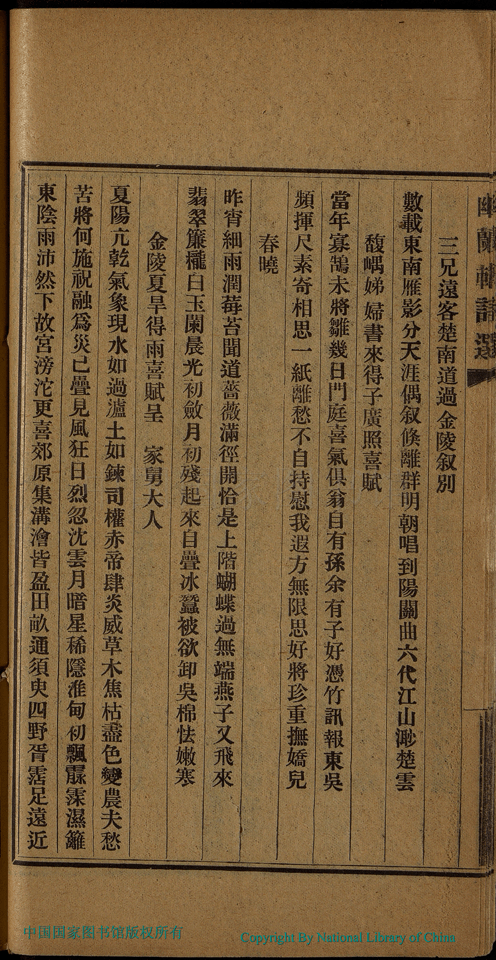 幽蘭軒詩選
三兄遠客楚南道過金陵叙別
數載東南雁影分天涯偶叙倏離群明朝唱到陽關曲六代江山渺楚雲
馥嵎娣婦書來得子廣照喜賦
當年寡鵠未將雛幾日門庭喜氣俱翁自有孫余有子好憑竹訊報東吳
頻揮尺素寄相思一紙離愁不自持慰我遐方無限思好將珍重撫嬌兒
春曉
昨宵細雨潤莓苔聞道薔薇滿徑開恰是上階蝴蝶過無端燕子又飛來
翡翠簾櫳白玉闌晨光初斂月初殘起來自疊冰蠶被欲卸吳棉怯嫩寒
金陵夏旱得雨喜賦呈 家舅大人
夏陽亢乾氣象現水如過瀘土如鍊司權赤帝肆炎威草木焦枯盡色變農夫愁
苦將何施祝融為災已疊見風狂日烈忽沈雲月暗星稀隱淮甸初飄霢霂濕籬
東陰雨沛然下故宮滂沱更喜郊原集溝澮皆盈田畝通須臾四野胥霑足遠近
中国国家图书馆版权所有
Copyright By National Library of China